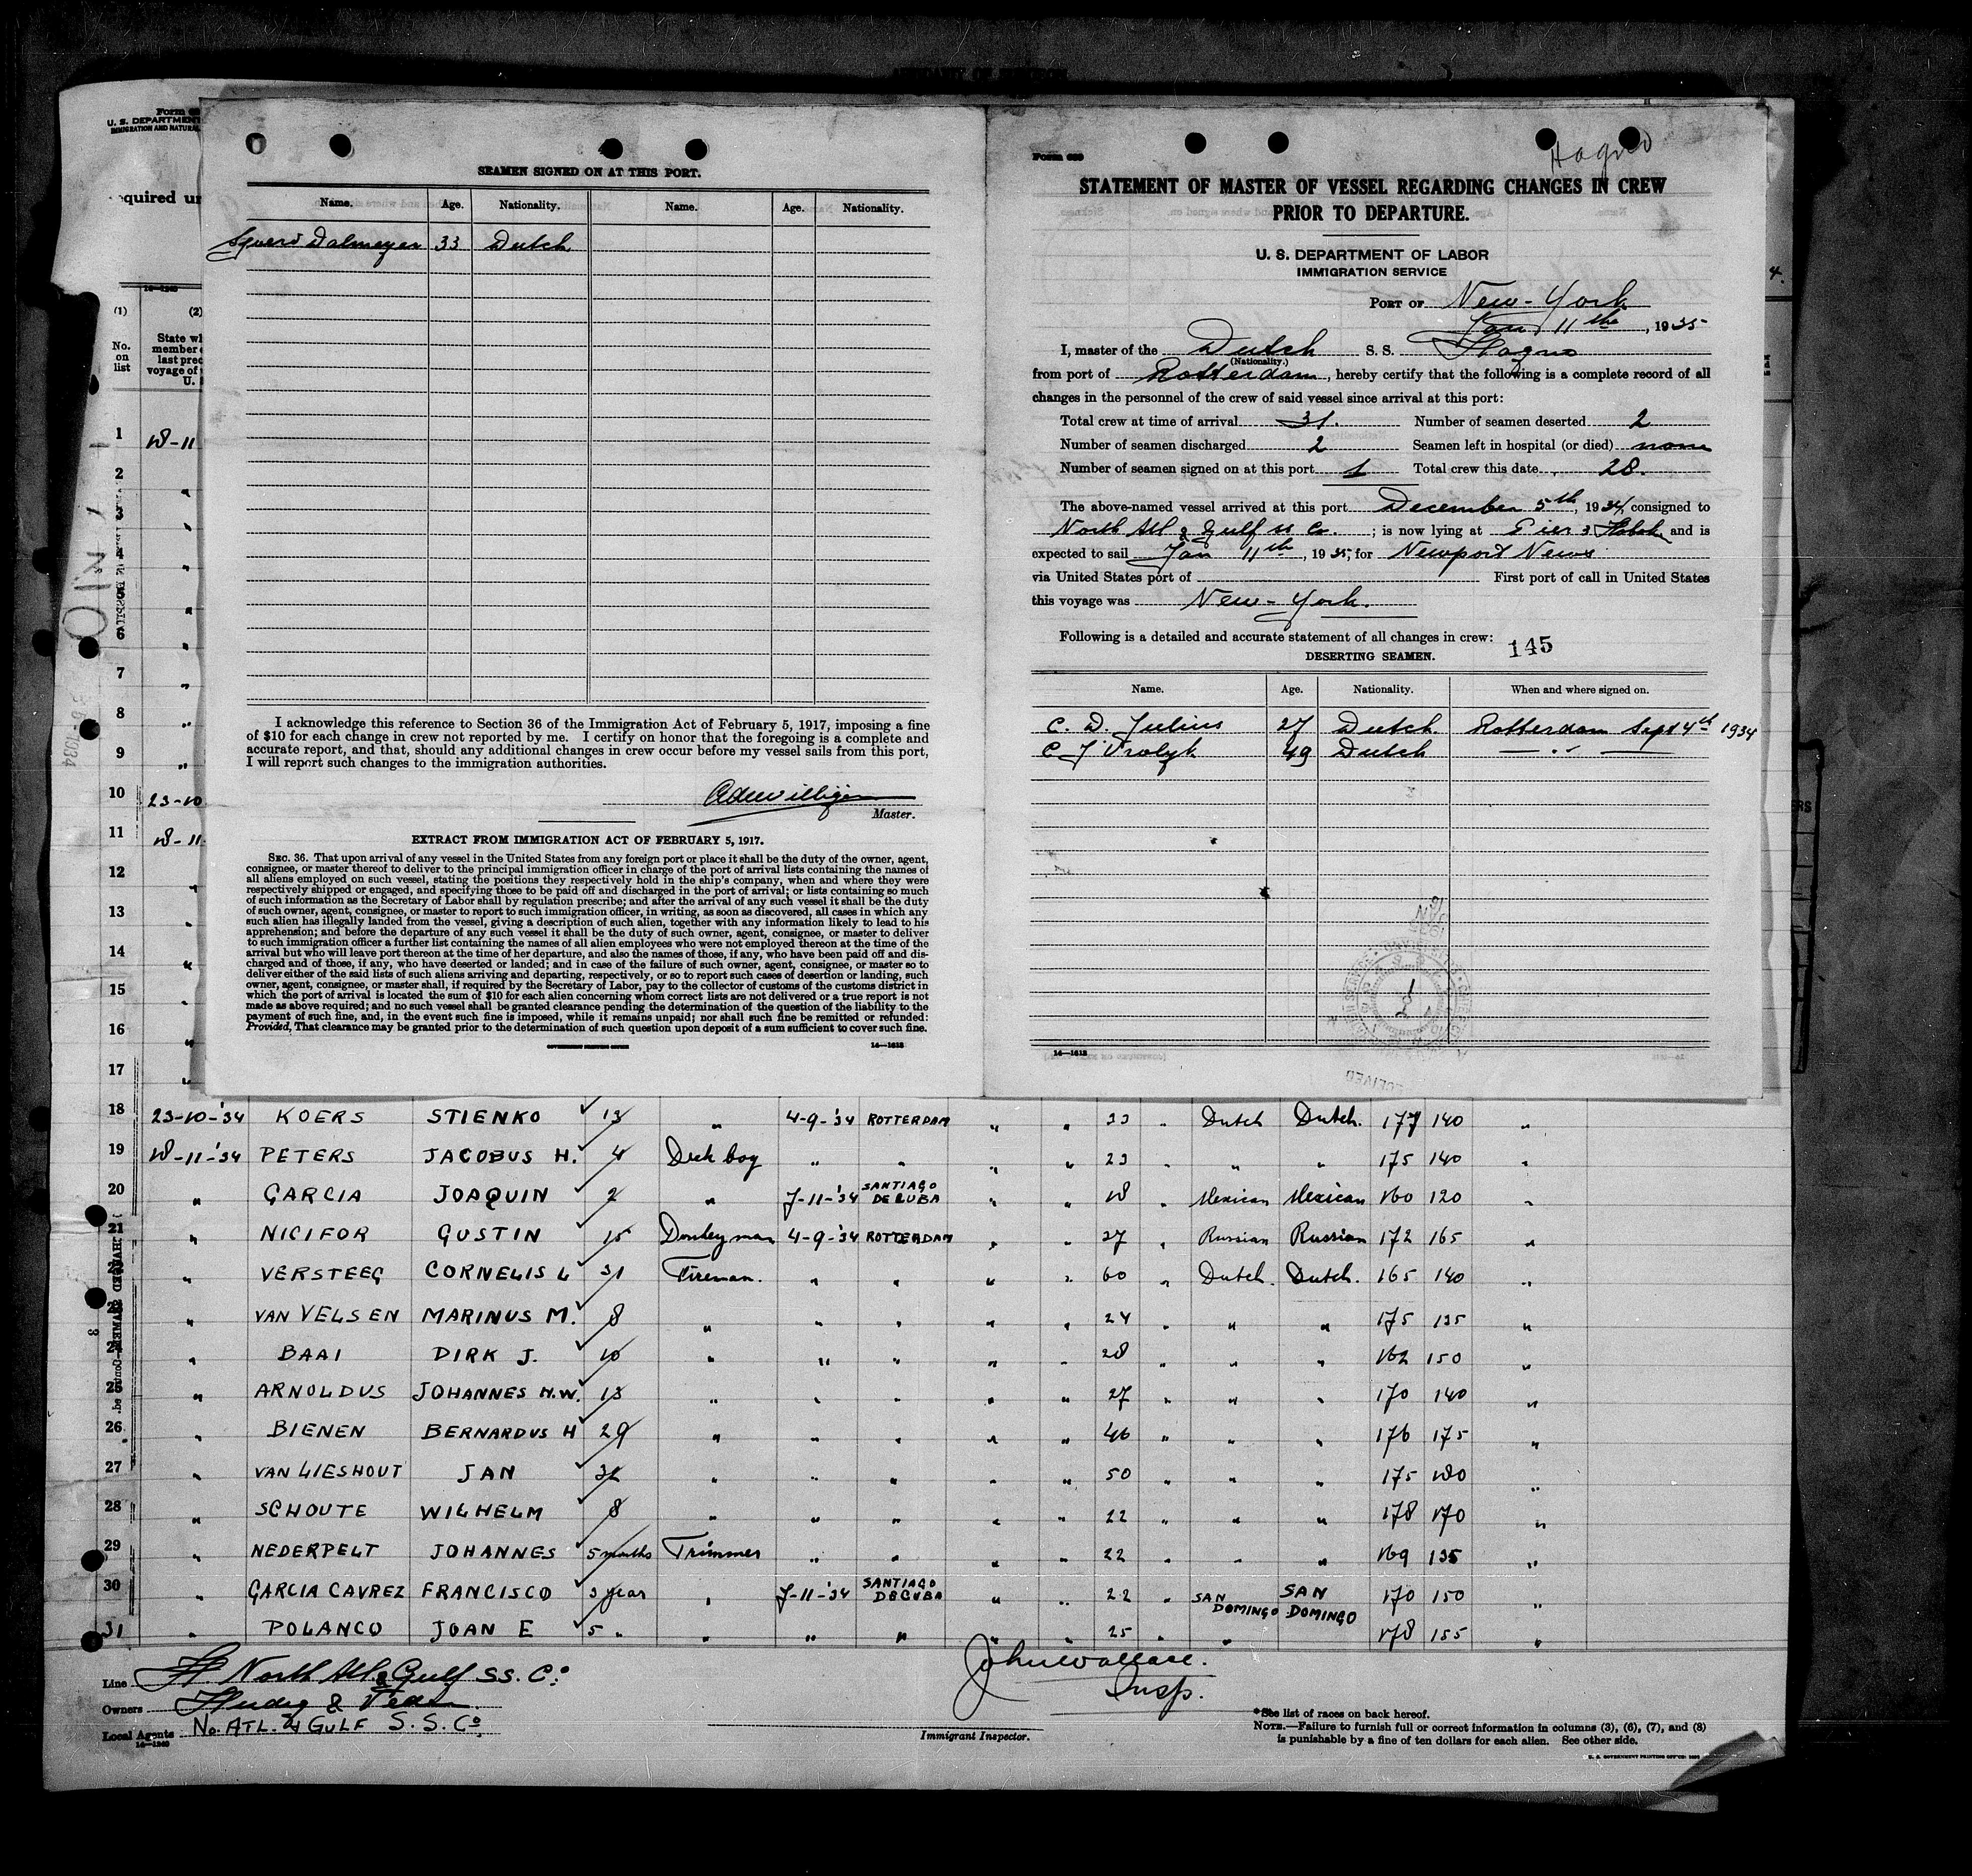 Form 6
U. S. DEPARTMENT
IMMIGRATION AND NATURAL
quired un
(1)
(2)
No.
on
list
State wh
member
last prec
voyage of
U.
1 18-11
2 "
3 "
4 "
5 "
6 "
7 "
8 "
9 "
10 23-10
11 18-11
12 "
13 "
14 "
15 "
16 "
17 "
SEAMEN SIGNED ON AT THIS PORT.
Name. Age. Nationality. Name. Age. Nationality.
Sjoerd Dalmeyer 33 Dutch
I acknowledge this reference to Section 36 of the Immigration Act of February 5, 1917, imposing a fine
of $10 for each change in crew not reported by me. I certify on honor that the foregoing is a complete and
accurate report, and that, should any additional changes in crew occur before my vessel sails from this port,
I will report such changes to the immigration authorities.
Master.
EXTRACT FROM IMMIGRATION ACT OF FEBRUARY 5, 1917.
SEC. 36. That upon arrival of any vessel in the United States from any foreign port or place it shall be the duty of the owner, agent,
consignee, or master thereof to deliver to the principal immigration officer in charge of the port of arrival lists containing the names of
all aliens employed on such vessel, stating the positions they respectively hold in the ship's company, when and where they were
respectively shipped or engaged, and specifying those to be paid off and discharged in the port of arrival; or lists containing so much
of such information as the Secretary of Labor shall by regulation prescribe; and after the arrival of any such vessel it shall be the duty
of such owner, agent, consignee, or master to report to such immigration officer, in writing, as soon as discovered, all cases in which any
such alien has illegally landed from the vessel, giving a description of such alien, together with any information likely to lead to his
apprehension; and before the departure of any such vessel it shall be the duty of such owner, agent, consignee, or master to deliver
to such immigration officer a further list containing the names of all alien employees who were not employed thereon at the time of the
arrival but who will leave port thereon at the time of her departure, and also the names of those, if any, who have been paid off and dis-
charged and of those, if any, who have deserted or landed; and in case of the failure of such owner, agent, consignee, or master so to
deliver either of the said lists of such aliens arriving and departing, respectively, or so to report such cases of desertion or landing, such
owner, agent, consignee, or master shall, if required by the Secretary of Labor, pay to the collector of customs of the customs district in
which the port of arrival is located the sum of $10 for each alien concerning whom correct lists are not delivered or a true report is not
made as above required; and no such vessel shall be granted clearance pending the determination of the question of the liability to the
payment of such fine, and, in the event such fine is imposed, while it remains unpaid; nor shall such fine be remitted or refunded:
Provided, That clearance may be granted prior to the determination of such question upon deposit of a sum sufficient to cover such fine.
GOVERNMENT PRINTING OFFICE 14—1613
Hagno
Form 689
STATEMENT OF MASTER OF VESSEL REGARDING CHANGES IN CREW
PRIOR TO DEPARTURE.
U. S. DEPARTMENT OF LABOR
IMMIGRATION SERVICE
PORT OF New-York
Jan 11th, 1935
I, master of the Dutch S. S. Hagno
(Nationality.)
from port of Rotterdam, hereby certify that the following is a complete record of all
changes in the personnel of the crew of said vessel since arrival at this port:
Total crew at time of arrival 31. Number of seamen deserted 2
Number of seamen discharged 2 Seamen left in hospital (or died) none
Number of seamen signed on at this port 1 Total crew this date 28.
The above-named vessel arrived at this port December 5th, 1934, consigned to
North Atl & Gulf ss Co. ; is now lying at Pier 3 Hobok. and is
expected to sail Jan 11th, 1935, for Newport News
via United States port of First port of call in United States
this voyage was New-York.
Following is a detailed and accurate statement of all changes in crew:
DESERTING SEAMEN. 145
Name. Age. Nationality. When and where signed on.
C. D. Julius 27 Dutch. Rotterdam Sept 4th 1934
C J Vrolyk 49 Dutch — " —
14—1613
18 23-10-'34 KOERS STIENKO 13 " 4-9-'34 ROTTERDAM " " 23 " Dutch Dutch. 177 140 "
19 18-11-'34 PETERS JACOBUS H. 4 Deck boy " " " " 23 " " " 175 140 "
20 " GARCIA JOAQUIN 2 " 7-11-'34 SANTIAGO DE CUBA " " 18 " Mexican Mexican 160 120 "
21 " NICIFOR GUSTIN 15 Donkeyman 4-9-'34 ROTTERDAM " " 27 " Russian Russian 172 165 "
22 " VERSTEEG CORNELIS L 31 Fireman. " " " " 60 " Dutch. Dutch. 165 140 "
23 " VAN VELSEN MARINUS M. 8 " " " " " 24 " " " 175 135 "
24 " BAAI DIRK J. 10 " " " " " 28 " " " 162 150 "
25 " ARNOLDUS JOHANNES H.W. 13 " " " " " 27 " " " 170 140 "
26 " BIENEN BERNARDUS H 29 " " " " " 46 " " " 176 175 "
27 " VAN LIESHOUT JAN 32 " " " " " 50 " " " 175 180 "
28 " SCHOUTE WILHELM 8 " " " " " 22 " " " 178 170 "
29 " NEDERPELT JOHANNES 5 months Trimmer " " " " 22 " " " 169 135 "
30 " GARCIA CAVREZ FRANCISCO 3 year " 7-11-'34 SANTIAGO DE CUBA " " 22 " SAN DOMINGO SAN DOMINGO 170 150 "
31 " POLANCO JOAN E 5 " " " " " " 25 " " " 178 155 "
Line H. North Atl. & Gulf SS. Co.
Owners Hudig &
Local Agents No. ATL. & GULF S. S. Co.
14—1240
John Wallace.
Insp.
Immigrant Inspector.
*See list of races on back hereof.
NOTE.—Failure to furnish full or correct information in columns (3), (6), (7), and (8)
is punishable by a fine of ten dollars for each alien. See other side.
U. S. GOVERNMENT PRINTING OFFICE